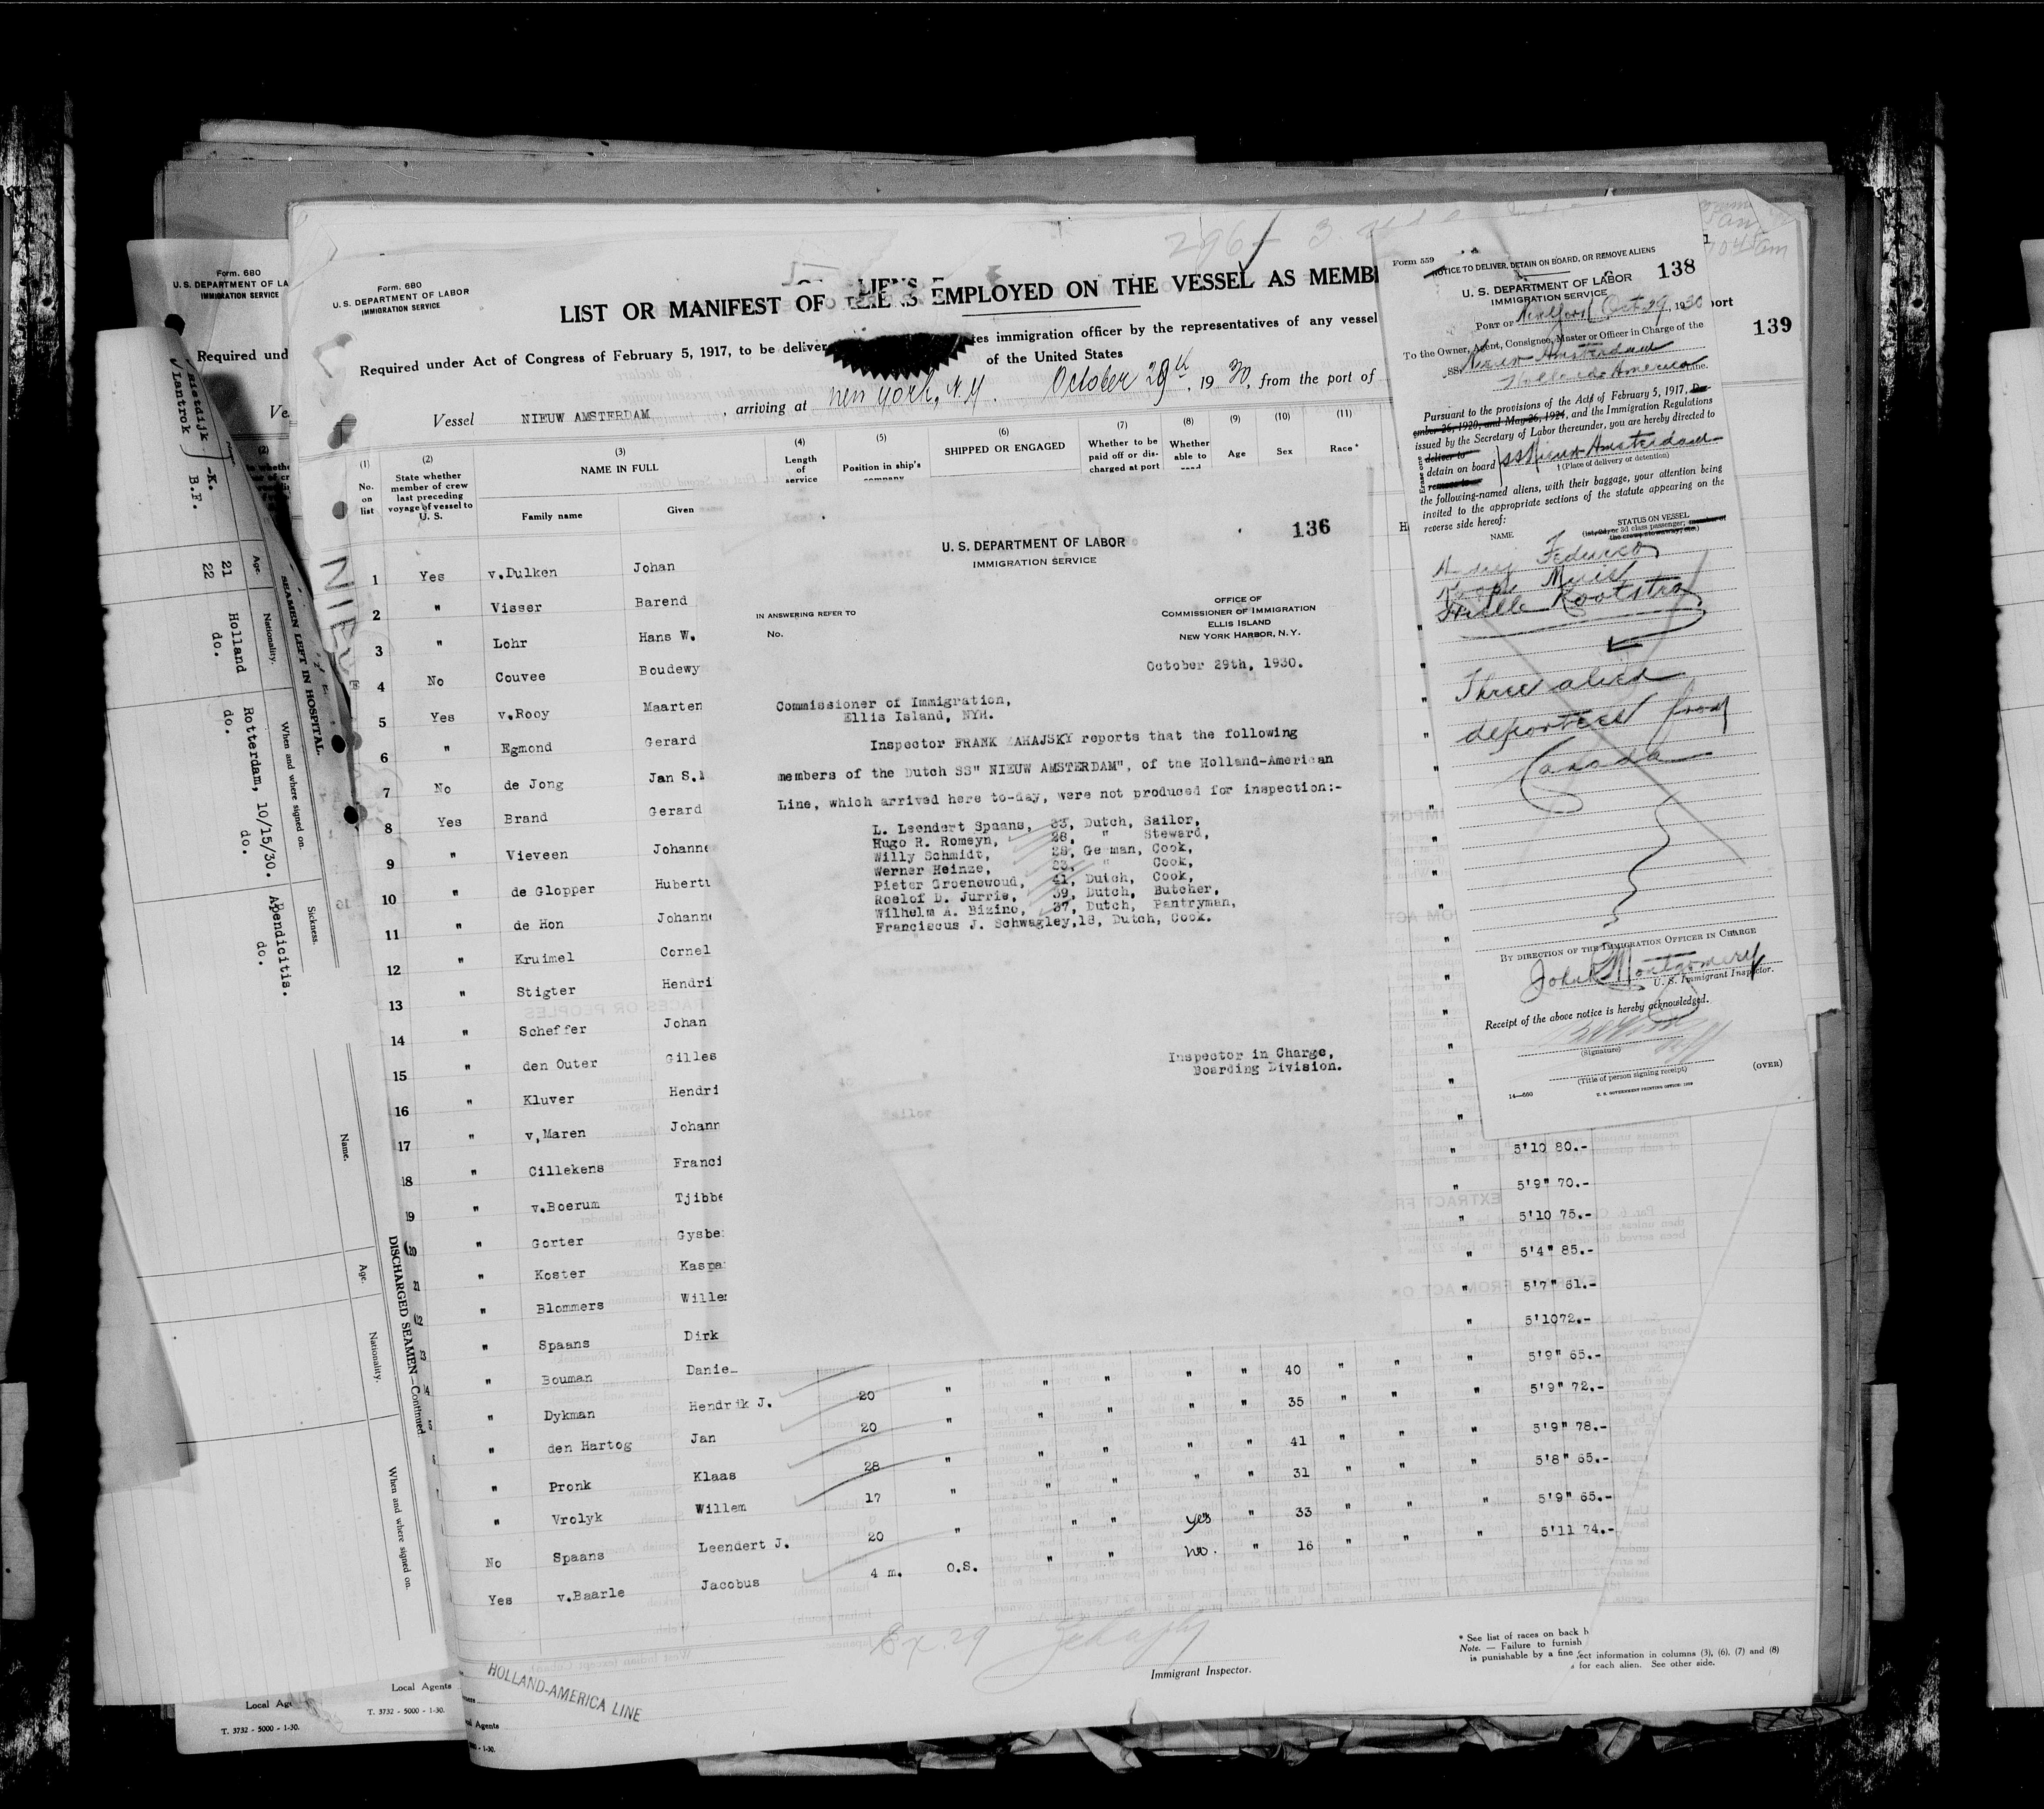 Form. 680
U. S. DEPARTMENT OF LA
IMMIGRATION SERVICE
Required und
Form. 680
U. S. DEPARTMENT OF LABOR
IMMIGRATION SERVICE
LIST OR MANIFEST OF EMPLOYED ON THE VESSEL AS MEMB
Required under Act of Congress of February 5, 1917, to be deliver tes immigration officer by the representatives of any vessel
of the United States
Vessel NIEUW AMSTERDAM , arriving at New York, N.Y. October 29th, 1930, from the port of
(1) No. on list
(2) State whether member of crew last preceding voyage of vessel to U. S.
(3) NAME IN FULL
Family name Given
(4) Length of service
(5) Position in ship's company
(6) SHIPPED OR ENGAGED
(7) Whether to be paid off or dis- charged at port
(8) Whether able to read
(9) Age
(10) Sex
(11) Race*
1 Yes v.Dulken Johan
2 " Visser Barend
3 " Lohr Hans W.
4 No Couvee Boudewy
5 Yes v.Rooy Maarten
6 " Egmond Gerard
7 No de Jong Jan S.
8 Yes Brand Gerard
9 " Vieveen Johanne
10 " de Glopper Huberti
11 " de Hon Johanne
12 " Kruimel Cornel
13 " Stigter Hendri
14 " Scheffer Johan
15 " den Outer Gilles
16 " Kluver Hendri
17 " v,Maren Johann
18 " Cillekens Franci
19 " v.Boerum Tjibbe
" Gorter Gysbe
" Koster Kaspa
" Blommers Wille
" Spaans Dirk
" Bouman Danie
" Dykman Hendrik J. 20 " " " " " 40 " " " 5'9" 65.-
" den Hartog Jan 20 " " " " " 35 " " " 5'9" 72.-
" Pronk Klaas 28 " " " " " 41 " " " 5'9" 78.-
" Vrolyk Willem 17 " " " " " 31 " " " 5'8" 65.-
No Spaans Leendert J. 20 " " " yes " 33 " " " 5'9" 65.-
Yes v.Baarle Jacobus 4 m. O.S. " " no. " 16 " " " 5'11 74.-
5'10 80.-
5'9" 70.-
5'10 75.-
5'4" 85.-
5'7" 61.-
5'1072.-
136
U. S. DEPARTMENT OF LABOR
IMMIGRATION SERVICE
IN ANSWERING REFER TO
No.
OFFICE OF
COMMISSIONER OF IMMIGRATION
ELLIS ISLAND
NEW YORK HARBOR, N. Y.
October 29th, 1930.
Commissioner of Immigration,
Ellis Island, NYH.
Inspector FRANK ZAHAJSKY reports that the following
members of the Dutch SS" NIEUW AMSTERDAM", of the Holland-American
Line, which arrived here to-day, were not produced for inspection:-
L. Leendert Spaans, 33, Dutch, Sailor,
Hugo R. Romeyn, 26, " Steward,
Willy Schmidt, 28, German, Cook,
Werner Heinze, 23, " Cook,
Pieter Groenewoud, 41, Dutch, Cook,
Roelof D. Jurrie, 39, Dutch, Butcher,
Wilhelm A. Bizino, 37, Dutch, Pantryman,
Franciscus J. Schwagley,18, Dutch, Cook.
Inspector in Charge,
Boarding Division.
Form 559
NOTICE TO DELIVER, DETAIN ON BOARD, OR REMOVE ALIENS
138
U. S. DEPARTMENT OF LABOR
IMMIGRATION SERVICE
PORT OF New York Oct 29, 1930
139
To the Owner, Agent, Consignee, Master or Officer in Charge of the
SS. Nieuw Amsterdam
Holland America Line.
Pursuant to the provisions of the Acts of February 5, 1917, De-
cember 26, 1920, and May 26, 1924, and the Immigration Regulations
issued by the Secretary of Labor thereunder, you are hereby directed to
deliver to
detain on board SS Nieuw Amsterdam
remove to
(Place of delivery or detention)
Erase one
the following-named aliens, with their baggage, your attention being
invited to the appropriate sections of the statute appearing on the
reverse side hereof:
NAME STATUS ON VESSEL
(1st, 2d, or 3d class passenger; member of
the crew, stowaway, etc.)
Federico
Kootstra
Three alien
deportees from
Canada
BY DIRECTION OF THE IMMIGRATION OFFICER IN CHARGE
John Montgomery
U. S. Immigrant Inspector.
Receipt of the above notice is hereby acknowledged.
(Signature)
(Title of person signing receipt)
14—560 U. S. GOVERNMENT PRINTING OFFICE: 1929
(OVER)
SEAMEN LEFT IN HOSPITAL.
Age. Nationality. When and where signed on. Sickness.
-K. 21 Holland Rotterdam, 10/15/30. Apendicitis.
Lantrok B.F. 22 do. do. do. do.
DISCHARGED SEAMEN—Continued.
Name. Age. Nationality. When and where signed on.
Immigrant Inspector.
* See list of races on back h
Note. — Failure to furnish
is punishable by a fine
ect information in columns (3), (6), (7) and (8)
for each alien. See other side.
HOLLAND-AMERICA LINE
Local Agents
T. 3732 - 5000 - 1-30.
Local Age
T. 3732 - 5000 - 1-30.